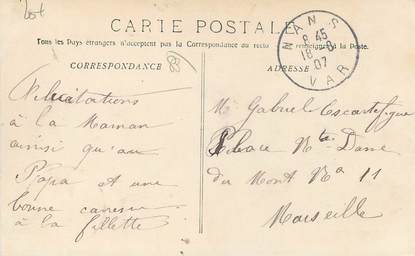 CARTE POSTALE
Tous les Pays étrangers n'acceptent pas la Correspondance au recto renseigner à la Poste.
CORRESPONDANCE
ADRESSE
NANS
8 45
18
07
VAR
Félicitations
à la Maman
ainsi qu'au
Papa et une
bonne caresse
à la fillette
Mr Gabriel Escartefigue
Place Nt. Dame
du Mont No 11
Marseille